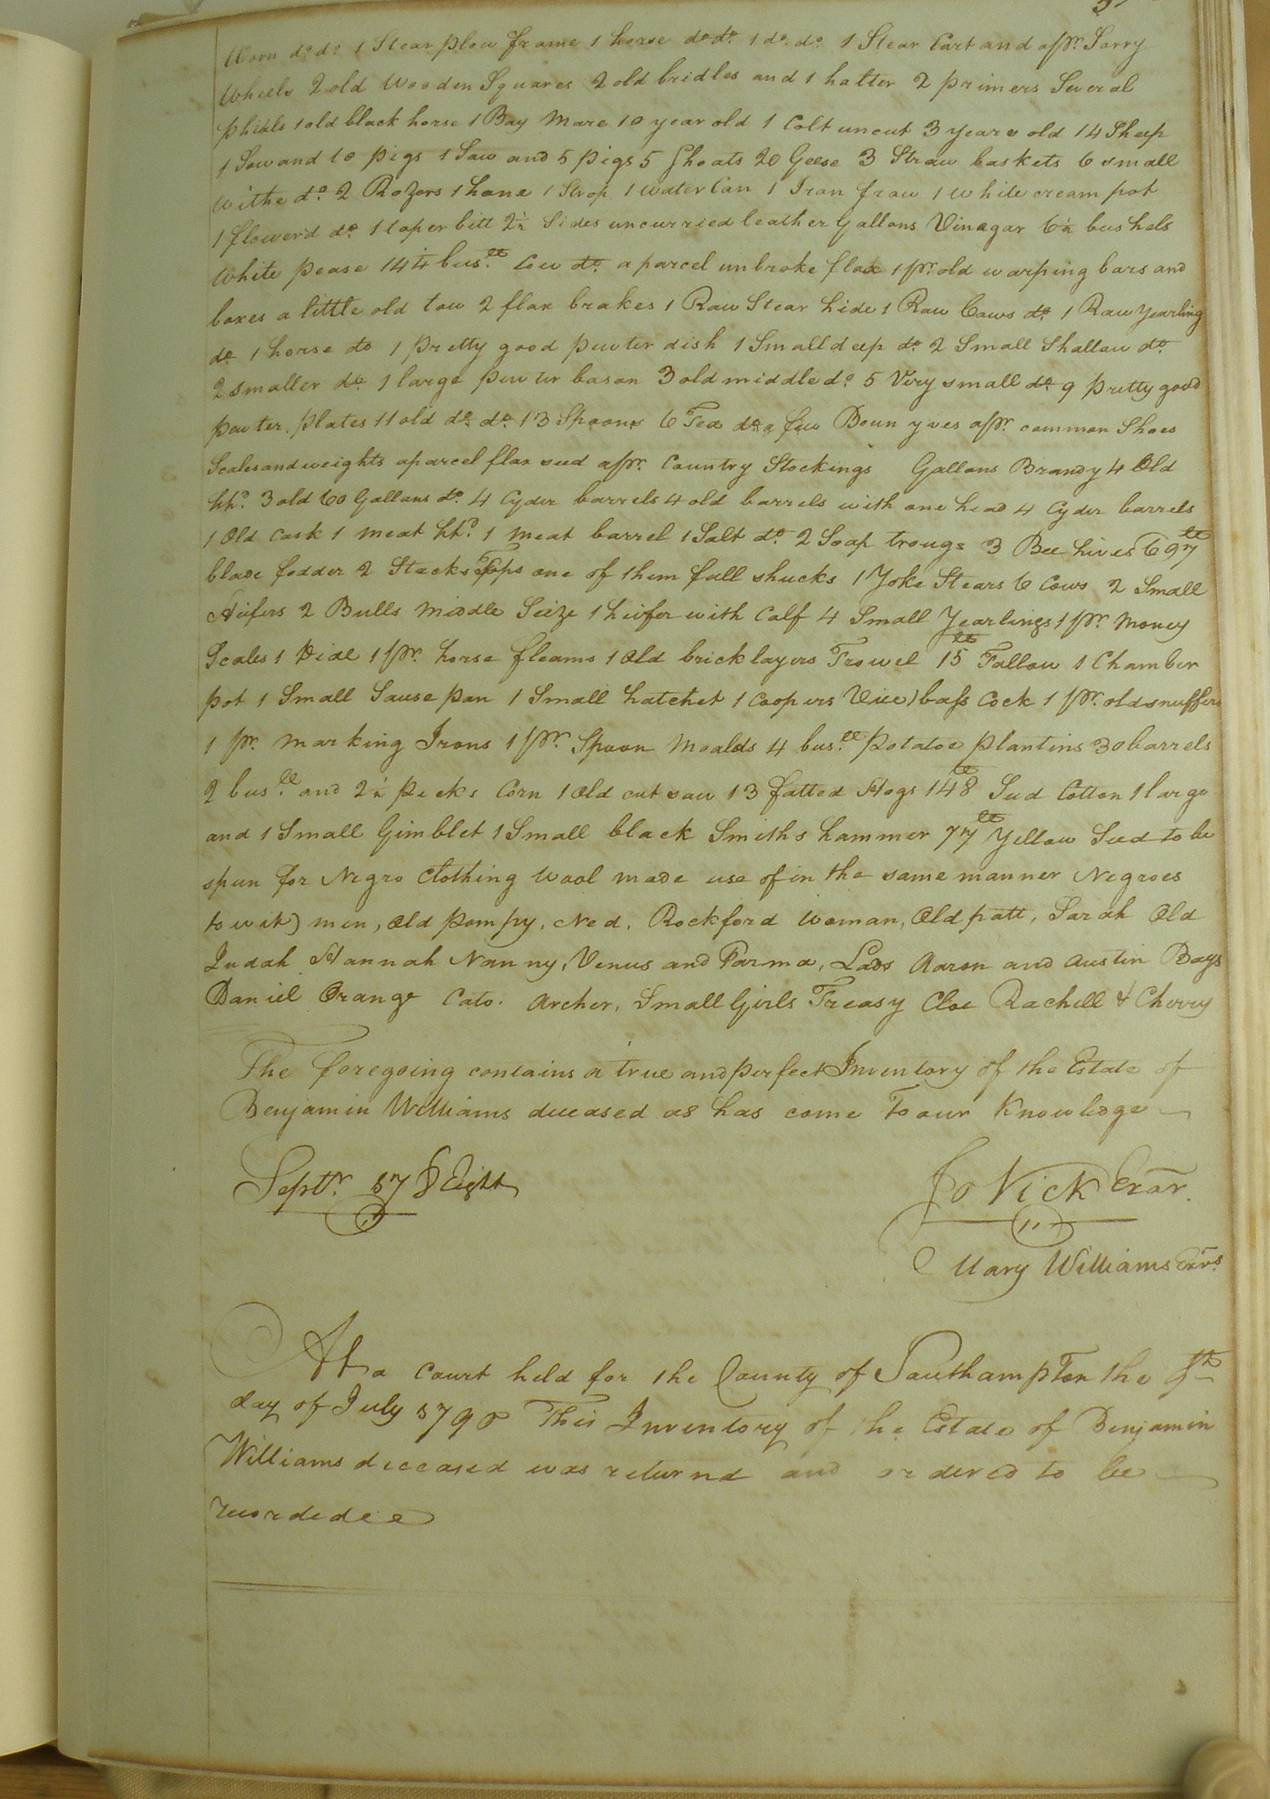 Worn do do 1 Stear plow frame 1 horse do do 1 do do 1 Stear Cart and a pr. Sorry
Wheels 2 old Wooden Squares 2 old bridles and 1 halter 2 primers Several
phials 1 old black horse 1 Bay Mare 10 year old 1 Colt uncut 3 years old 14 Sheep
1 Sow and 10 pigs 1 Sow and 5 pigs 5 Shoats 20 Geese 3 Straw baskets 6 small
withe do 2 Rozers 1 hone 1 Strop 1 water Can 1 Iron frow 1 White cream pot
1 flowerd do 1 taper bitt 2½ Sides uncurried leather Gallons Vinagar 6½ bushels
White pease 14¼ bus.ll Cow do a parcel unbroke flax 1 pr. old warping bars and
boxes a little old tow 2 flax brakes 1 Raw Stear hide 1 Raw Cows do 1 Raw Yearling
do 1 horse do 1 pretty good pewter dish 1 Small deep do 2 Small Shallow do
2 smaller do 1 large pewter bason 3 old middle do 5 Very small do 9 pretty good
pewter plates 11 old do do 13 Spoons 6 Tea do a few a pr. common Shoes
Scales and weights a parcel flax seed a pr. Country Stockings Gallons Brandy 4 Old
hhd 3 old 60 Gallons do 4 Cyder barrels 4 old barrels with one head 4 Cyder barrels
1 Old Cask 1 meat hhd 1 meat barrel 1 Salt do 2 Soap trougs 3 Bee hives 697 lt
blade fodder 2 Stacks Tops one of them full shucks 1 Yoke Stears 6 Cows 2 Small
Heifers 2 Bulls Middle Seize 1 heifer with Calf 4 Small Yearlings 1 pr. Money
Scales 1 Hide 1 pr. horse fleams 1 Old bricklayers Trowel 15 lt Tallow 1 Chamber
pot 1 Small Sause pan 1 Small hatchet 1 Coopers Vice) bass Cock 1 pr. old snuffers
1 pr. marking Irons 1 pr. Spoon Moalds 4 bus.ll Potatoe plantins 30 barrels
2 bus.ll and 2½ pecks Corn 1 Old cut saw 13 fatted Hogs 148 lt Seed Cotton 1 large
and 1 Small Gimblet 1 Small black Smiths hammer 77 lt Yellow Seed to be
spun for Negro Clothing Wool made use of in the same manner Negroes
to wit) men, Old Pompy, Ned, Rockford Woman, Old patt, Sarah Old
Judah Hannah Nanny, Venus and Farma, Lads Aaron and Austin Boys
Daniel Orange Cato. Archer, Small Girls Treasy Cloe Rachell & Cherry
The foregoing contains a true and perfect Inventory of the Estate of
Benjamin Williams deceased as has come to our Knowledge
Septr. 178 Eight
Jo Vick Exor.
Mary Williams Exrs
At a Court held for the County of Southampton the 9th
day of July 1790 This Inventory of the Estate of Benjamin
Williams deceased was returnd and ordered to be
recorded